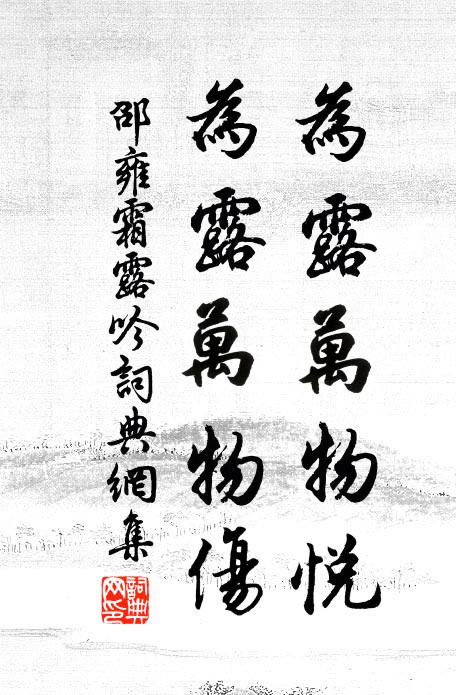 為露萬物悅
為露萬物傷
邵雍霜露吟詞典網集
詞典